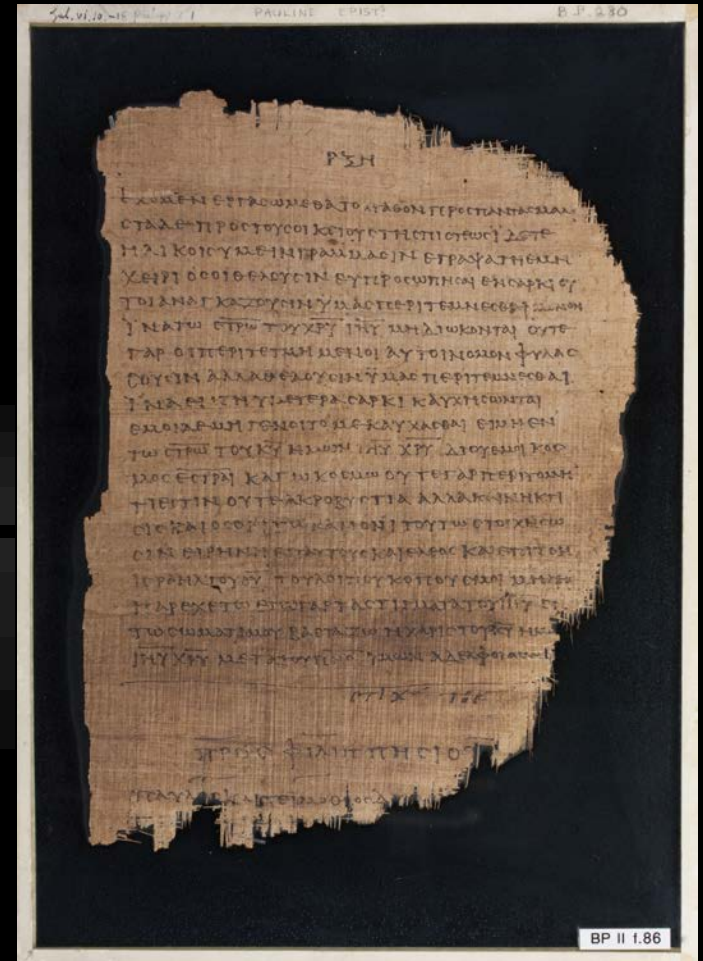 Gal. vi, 10.–18 Phil. 1
PAULINE EPISTS
B.P. 230
ΡΞΗ
ΕΧΟΜΕΝ ΕΡΓΑϹΩΜΕΘΑ ΤΟ ΑΓΑΘΟΝ ΠΡΟϹ ΠΑΝΤΑϹ ΜΑΛΙ
ϹΤΑ ΔΕ ΠΡΟϹ ΤΟΥϹ ΟΙΚΕΙΟΥϹ ΤΗϹ ΠΙϹΤΕΩϹ ΙΔΕΤΕ
ΗΛΙΚΟΙϹ ΥΜΕΙΝ ΓΡΑΜΜΑϹΙΝ ΕΓΡΑΨΑ ΤΗ ΕΜΗ
ΧΕΙΡΙ ΟϹΟΙ ΘΕΛΟΥϹΙΝ ΕΥΠΡΟϹΩΠΗϹΑΙ ΕΝ ϹΑΡΚΙ ΟΥ
ΤΟΙ ΑΝΑΓΚΑΖΟΥϹΙΝ ΥΜΑϹ ΠΕΡΙΤΕΜΝΕϹΘΑΙ ΜΟΝΟΝ
ΙΝΑ ΤΩ ϹΤΡΩ ΤΟΥ ΧΡΥ ΙΗΥ ΜΗ ΔΙΩΚΟΝΤΑΙ ΟΥΤΕ
ΓΑΡ ΟΙ ΠΕΡΙΤΕΤΜΗΜΕΝΟΙ ΑΥΤΟΙ ΝΟΜΟΝ ΦΥΛΑϹ
ϹΟΥϹΙΝ ΑΛΛΑ ΘΕΛΟΥϹΙΝ ΥΜΑϹ ΠΕΡΙΤΕΜΝΕϹΘΑΙ
ΙΝΑ ΕΝ ΤΗ ΥΜΕΤΕΡΑ ϹΑΡΚΙ ΚΑΥΧΗϹΩΝΤΑΙ
ΕΜΟΙ ΔΕ ΜΗ ΓΕΝΟΙΤΟ ΜΕ ΚΑΥΧΑϹΘΑΙ ΕΙ ΜΗ ΕΝ
ΤΩ ϹΤΡΩ ΤΟΥ ΚΥ ΗΜΩΝ ΙΗΥ ΧΡΥ ΔΙ ΟΥ ΕΜΟΙ ΚΟϹ
ΜΟϹ ΕϹΤΡΑΙ ΚΑΓΩ ΚΟϹΜΩ ΟΥΤΕ ΓΑΡ ΠΕΡΙΤΟΜΗ
ΤΙ ΕϹΤΙΝ ΟΥΤΕ ΑΚΡΟΒΥϹΤΙΑ ΑΛΛΑ ΚΑΙΝΗ ΚΤΙ
ϹΙϹ ΚΑΙ ΟϹΟΙ ΤΩ ΚΑΝΟΝΙ ΤΟΥΤΩ ϹΤΟΙΧΗϹΩ
ϹΙΝ ΕΙΡΗΝΗ ΕΠ ΑΥΤΟΥϹ ΚΑΙ ΕΛΕΟϹ ΚΑΙ ΕΠΙ ΤΟΝ
ΙϹΡΑΗΛ ΤΟΥ ΘΥ ΤΟΥ ΛΟΙΠΟΥ ΚΟΠΟΥϹ ΜΟΙ ΜΗΔΕΙϹ
ΠΑΡΕΧΕΤΩ ΕΓΩ ΓΑΡ ΤΑ ϹΤΙΓΜΑΤΑ ΤΟΥ ΙΗΥ ΕΝ
ΤΩ ϹΩΜΑΤΙ ΜΟΥ ΒΑϹΤΑΖΩ Η ΧΑΡΙϹ ΤΟΥ ΚΥ ΗΜΩ
ΙΗΥ ΧΡΥ ΜΕΤΑ ΤΟΥ ΠΝϹ ΥΜΩΝ ΑΔΕΛΦΟΙ ΑΜΗΝ
ϹΤΙΧ ΤΟΕ
ΠΡΟϹ ΦΙΛΙΠΠΗϹΙΟΥϹ
ΠΑΥΛΟϹ ΚΑΙ ΤΕΙΜΟΘΕΟϹ
BP II f.86